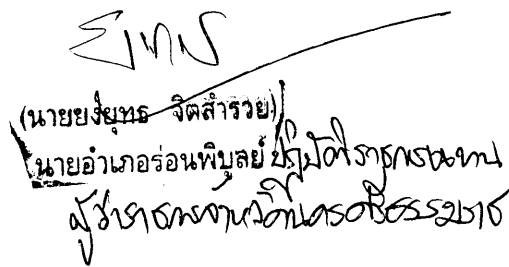 (นายยงยุทธ จิตสำรวย)
นายอำเภอร่อนพิบูลย์ ปฏิบัติราชการแทน
ผู้ว่าราชการจังหวัดนครศรีธรรมราช